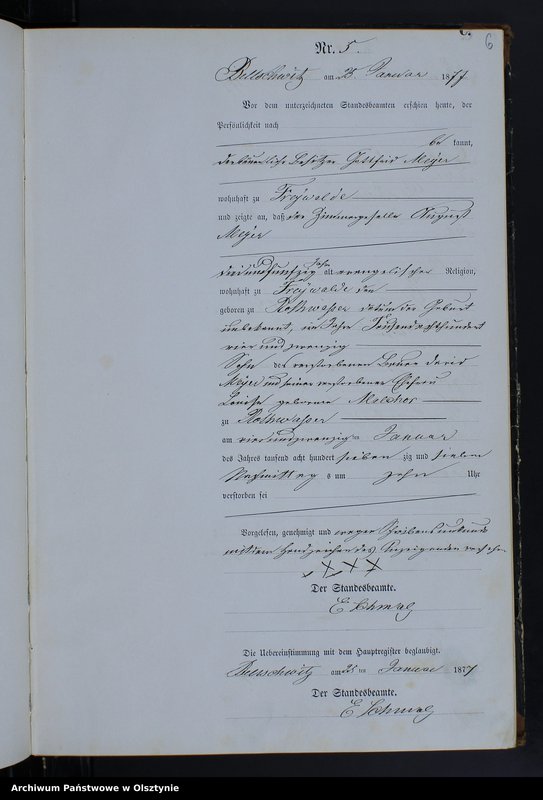 6
Nr. 5.
Bellschwitz am 25 Januar 1877
Vor dem unterzeichneten Standesbeamten erschien heute, der
Persönlichkeit nach
be kannt,
der Besitzer Gottfried Meyer
wohnhaft zu Freywalde
und zeigte an, daß der Zimmergeselle August
Meyer
dreiundfunfzig Jahr alt evangelischer Religion,
wohnhaft zu Freywalde den
geboren zu Rothwasser datum der Geburt
unbekannt, im Jahr Tausendachthundert
vier und zwanzig
Sohn des verstorbenen Bauer David
Meyer und seiner verstorbenen Ehefrau
Louise geborene Melchor
zu Rothwasser
am vierundzwanzigten Januar
des Jahres tausend acht hundert sieben zig und sieben
Nachmittag s um zehn Uhr
verstorben sei
Vorgelesen, genehmigt und wegen Schreibensunkunde
mit dem Handzeichen des Anzeigenden versehen
XXX
Der Standesbeamte.
E Schmalz
Die Uebereinstimmung mit dem Hauptregister beglaubigt.
Bellschwitz am 25 ten Januar 1877
Der Standesbeamte.
E Schmalz
Archiwum Państwowe w Olsztynie